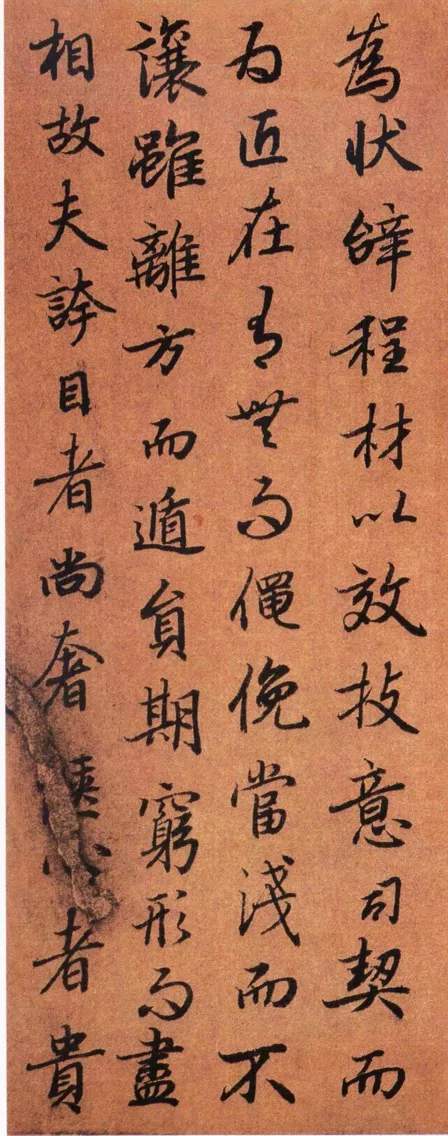 為状辭程材以效技意司契而
為匠在有無而僶俛當淺而不
讓雖離方而遁員期窮形而盡
相故夫誇目者尚奢心者貴